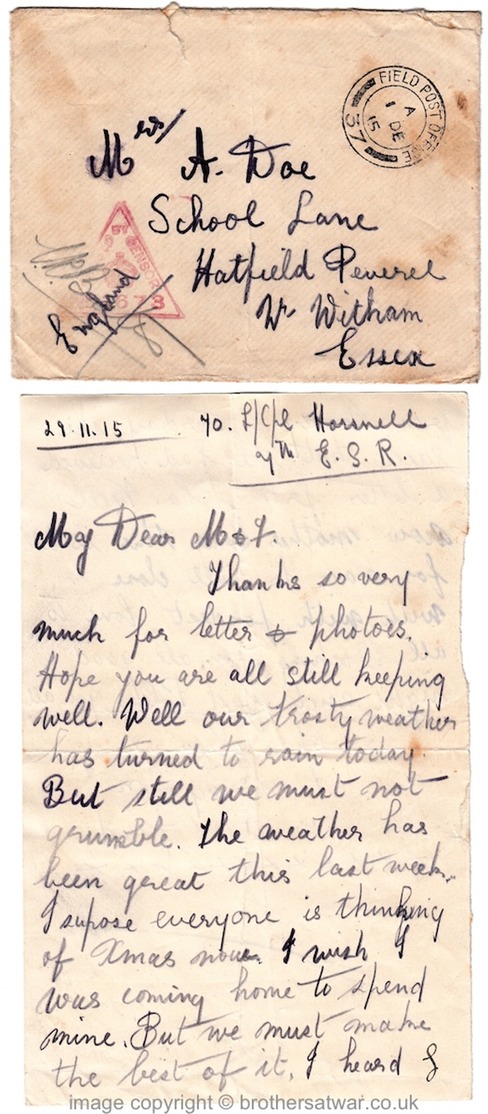 FIELD POST OFFICE
37
A
1 DE
15
Mrs/ A. Doe
School Lane
Hatfield Peverel
Nr Witham
Essex
England
CENSOR
678
29.11.15 L/Cpl Horsnell
7th E.S.R.
My Dear M & F.
Thanks so very
much for letter & photoes.
Hope you are all still keeping
well. Well our frosty weather
has turned to rain today.
But still we must not
grumble. The weather has
been great this last week.
I supose everyone is thinking
of Xmas now. I wish I
was coming home to spend
mine. But we must make
the best of it. I heard
image copyright © brothersatwar.co.uk